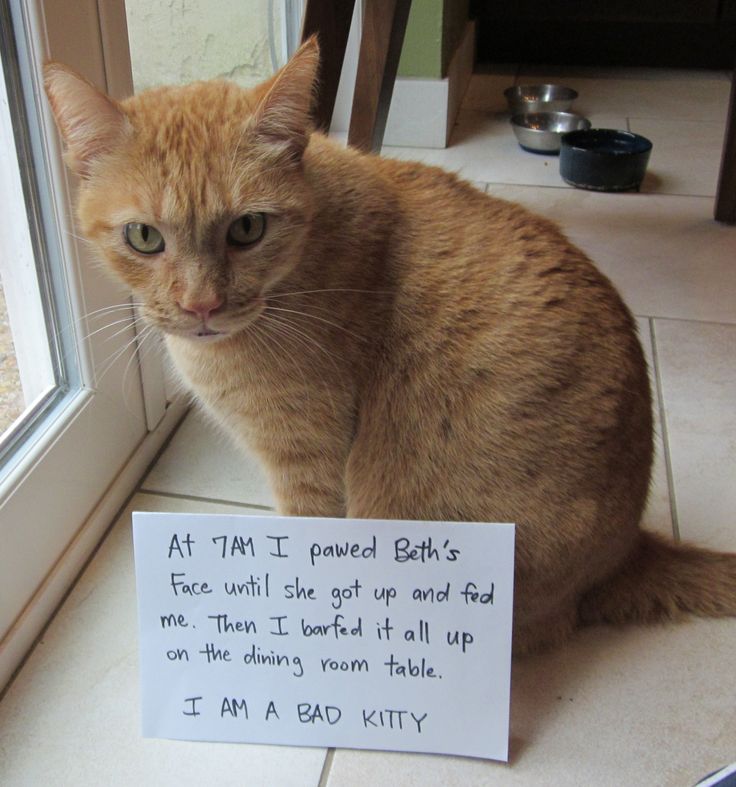 At 7AM I pawed Beth's
Face until she got up and fed
me. Then I barfed it all up
on the dining room table.
I AM A BAD KITTY